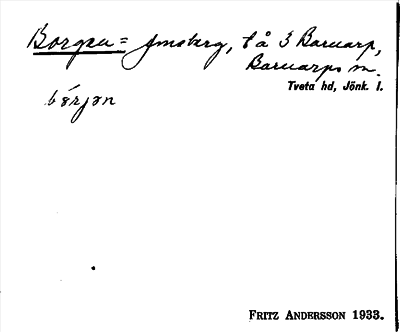 Borgen = Amsberg, t å 3 Barnarp,
Barnarps sn.
Tveta hd, Jönk. l.
bórjən
FRITZ ANDERSSON 1933.